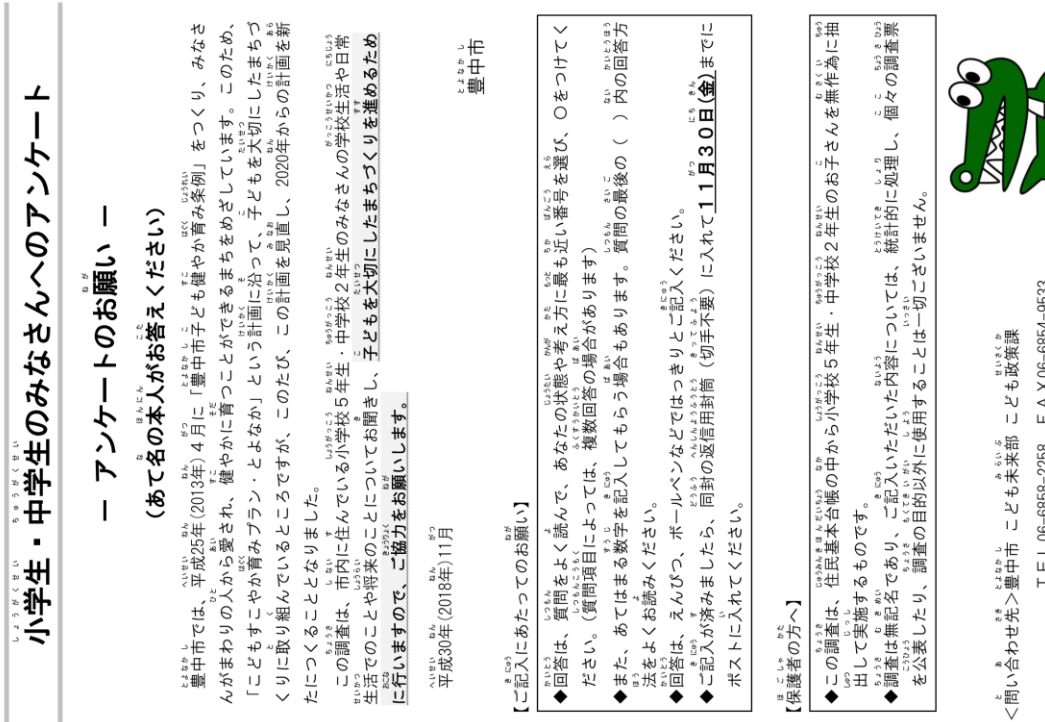 小学生・中学生のみなさんへのアンケート
－ アンケートのお願い －
（あて名の本人がお答えください）
豊中市では、平成25年(2013年)４月に「豊中市子ども健やか育み条例」をつくり、みなさ
んがまわりの人から愛され、健やかに育つことができるまちをめざしています。このため、
「こどもすこやか育みプラン・とよなか」という計画に沿って、子どもを大切にしたまちづ
くりに取り組んでいるところですが、このたび、この計画を見直し、2020年からの計画を新
たにつくることとなりました。
この調査は、市内に住んでいる小学校５年生・中学校２年生のみなさんの学校生活や日常
生活でのことや将来のことについてお聞きし、子どもを大切にしたまちづくりを進めるため
に行いますので、ご協力をお願いします。
平成30年(2018年)11月
豊中市
【ご記入にあたってのお願い】
◆回答は、質問をよく読んで、あなたの状態や考え方に最も近い番号を選び、○をつけてく
ださい。（質問項目によっては、複数回答の場合があります）
◆また、あてはまる数字を記入してもらう場合もあります。質問の最後の（　）内の回答方
法をよくお読みください。
◆回答は、えんぴつ、ボールペンなどではっきりとご記入ください。
◆ご記入が済みましたら、同封の返信用封筒（切手不要）に入れて１１月３０日(金)までに
ポストに入れてください。
【保護者の方へ】
◆この調査は、住民基本台帳の中から小学校５年生・中学校２年生のお子さんを無作為に抽
出して実施するものです。
◆調査は無記名であり、ご記入いただいた内容については、統計的に処理し、個々の調査票
を公表したり、調査の目的以外に使用することは一切ございません。
＜問い合わせ先＞豊中市 こども未来部 こども政策課
ＴＥＬ06-6858-2258　ＦＡＸ06-6854-9533